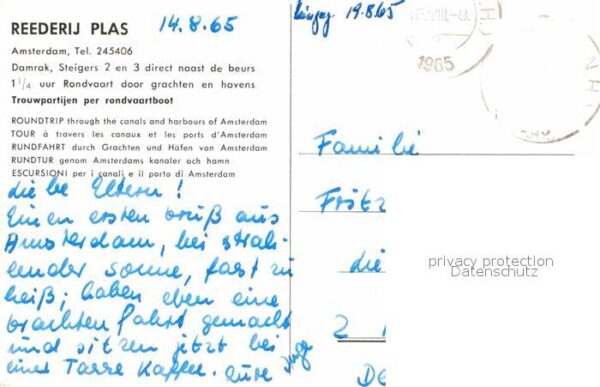 REEDERIJ PLAS
14.8.65
Amsterdam, Tel. 245406
Damrak, Steigers 2 en 3 direct naast de beurs
1 1/4 uur Rondvaart door grachten en havens
Trouwpartijen per rondvaartboot
ROUNDTRIP through the canals and harbours of Amsterdam
TOUR à travers les canaux et les ports d'Amsterdam
RUNDFAHRT durch Grachten und Häfen van Amsterdam
RUNDTUR genom Amsterdams kanaler och hamn
ESCURSIONI per i canali e il porto di Amsterdam
Liebe Eltern!
Einen ersten Gruß aus
Amsterdam, bei strah-
lender Sonne, fast zu
heiß; haben eben eine
Grachtenfahrt gemacht
und sitzen jetzt bei
einer Tasse Kaffee. Eure
Inge
19.8.65
VIII-8.
1965
Familie
Fritz
privacy protection
Datenschutz